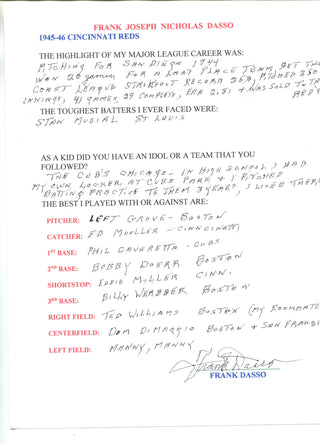 FRANK JOSEPH NICHOLAS DASSO
1945-46 CINCINNATI REDS
THE HIGHLIGHT OF MY MAJOR LEAGUE CAREER WAS:
PITCHING FOR SAN DIEGO 1944
WON 20 games, FOR A LAST PLACE TEAM, SET THE
COAST LEAGUE STRIKOUT RECORD 253, PITCHED 350
INNINGS, 41 GAMES, 29 COMPLETE, ERA 2.81 + WAS SOLD TO THE
REDS
THE TOUGHEST BATTERS I EVER FACED WERE:
STAN MUSIAL ST LOUIS
AS A KID DID YOU HAVE AN IDOL OR A TEAM THAT YOU
FOLLOWED?
THE CUBS CHICAGO - IN HIGH SCHOOL, I HAD
MY OWN LOCKER AT CUBS PARK & I PITCHED
BATTING PRACTICE TO THEM 3 YEARS, I LIVED THERE
THE BEST I PLAYED WITH OR AGAINST ARE:
PITCHER: LEFT GROVE - BOSTON
CATCHER: ED MUELLER - CINNCINATTI
1st BASE: PHIL CAVERETTA - CUBS
2ND BASE: BOBBY DOERR BOSTON
SHORTSTOP: EDDIE MILLER CINN.
3RD BASE: BILLY WERBBER BOSTON
RIGHT FIELD: TED WILLIAMS BOSTON (MY ROOMMATE
CENTERFIELD: DOM DIMAGGIO BOSTON & SAN FRANCIS
LEFT FIELD: MANNY, MANNY
Frank Dasso
FRANK DASSO